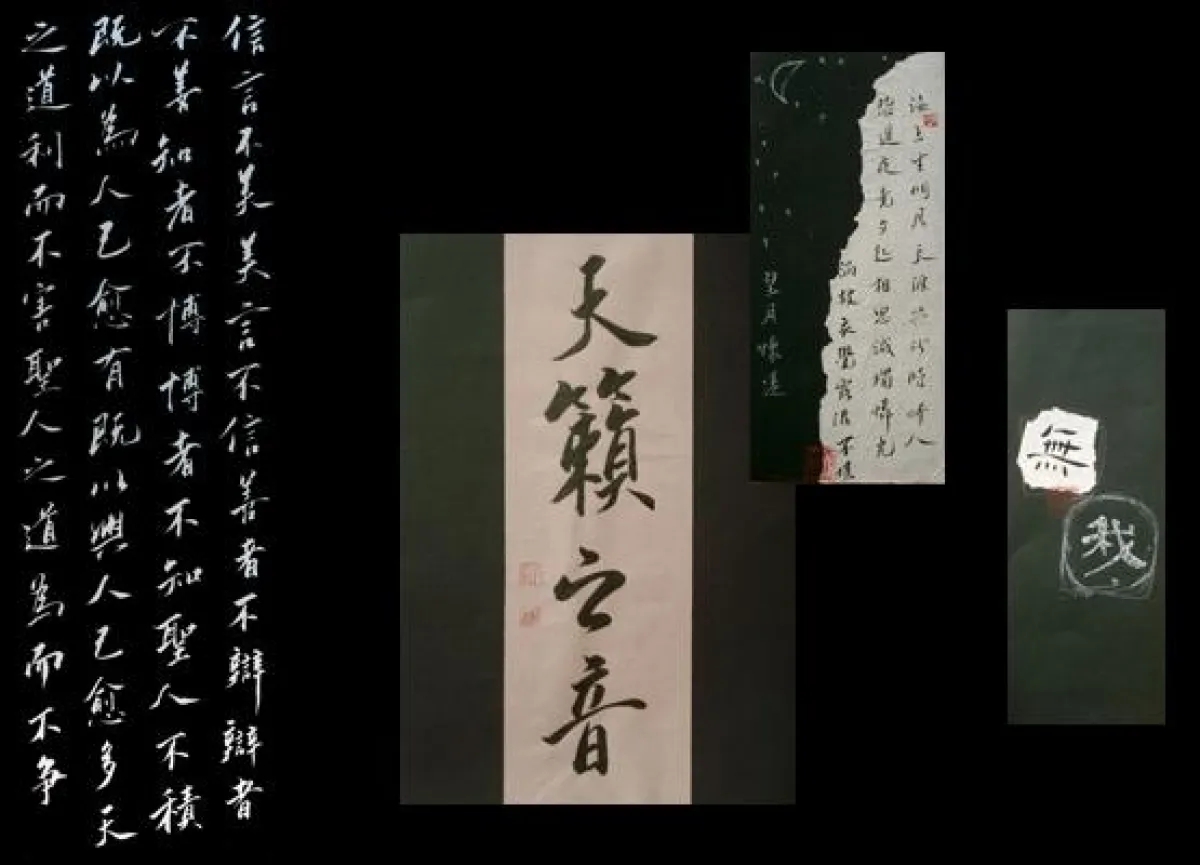 信言不美美言不信善者不辯辯者
不善知者不博博者不知聖人不積
既以為人己愈有既以與人己愈多天
之道利而不害聖人之道為而不爭
天籟之音
海上生明月天涯共此時情人
怨遙夜竟夕起相思滅燭憐光
滿披衣覺露滋不堪
望月懷遠
無
我